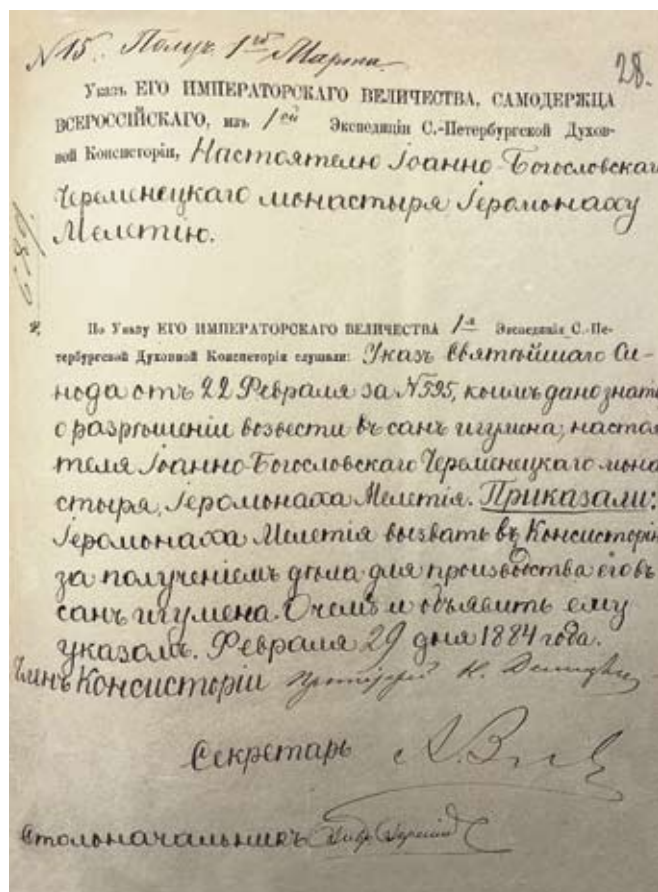 N 15. Получ. 1го Марта.
28.
Указъ ЕГО ИМПЕРАТОРСКАГО ВЕЛИЧЕСТВА, САМОДЕРЖЦА
ВСЕРОССІЙСКАГО, изъ 1ой Экспедиціи С.-Петербургской Духов-
ной Консисторіи, Настоятелю Іоанно-Богословскаго
Череменецкаго монастыря Іеромонаху
Мелетію.
По Указу ЕГО ИМПЕРАТОРСКАГО ВЕЛИЧЕСТВА 1-я Экспедиція С.-Пе-
тербургской Духовной Консисторіи слушали: Указъ Святѣйшаго Си-
нода отъ 22 Февраля за N 595, коимъ дано знать
о разрѣшеніи возвести въ санъ игумена, настоя
теля Іоанно-Богословскаго Череменецкаго мона
стыря, Іеромонаха Мелетія. Приказали:
Іеромонаха Мелетія вызвать въ Консисторію
за полученіемъ дѣла для производства его въ
санъ игумена. О чемъ и объявить ему
указомъ. Февраля 29 дня 1884 года.
Членъ Консисторіи Протоіерей К.
Секретарь А.
Столоначальникъ